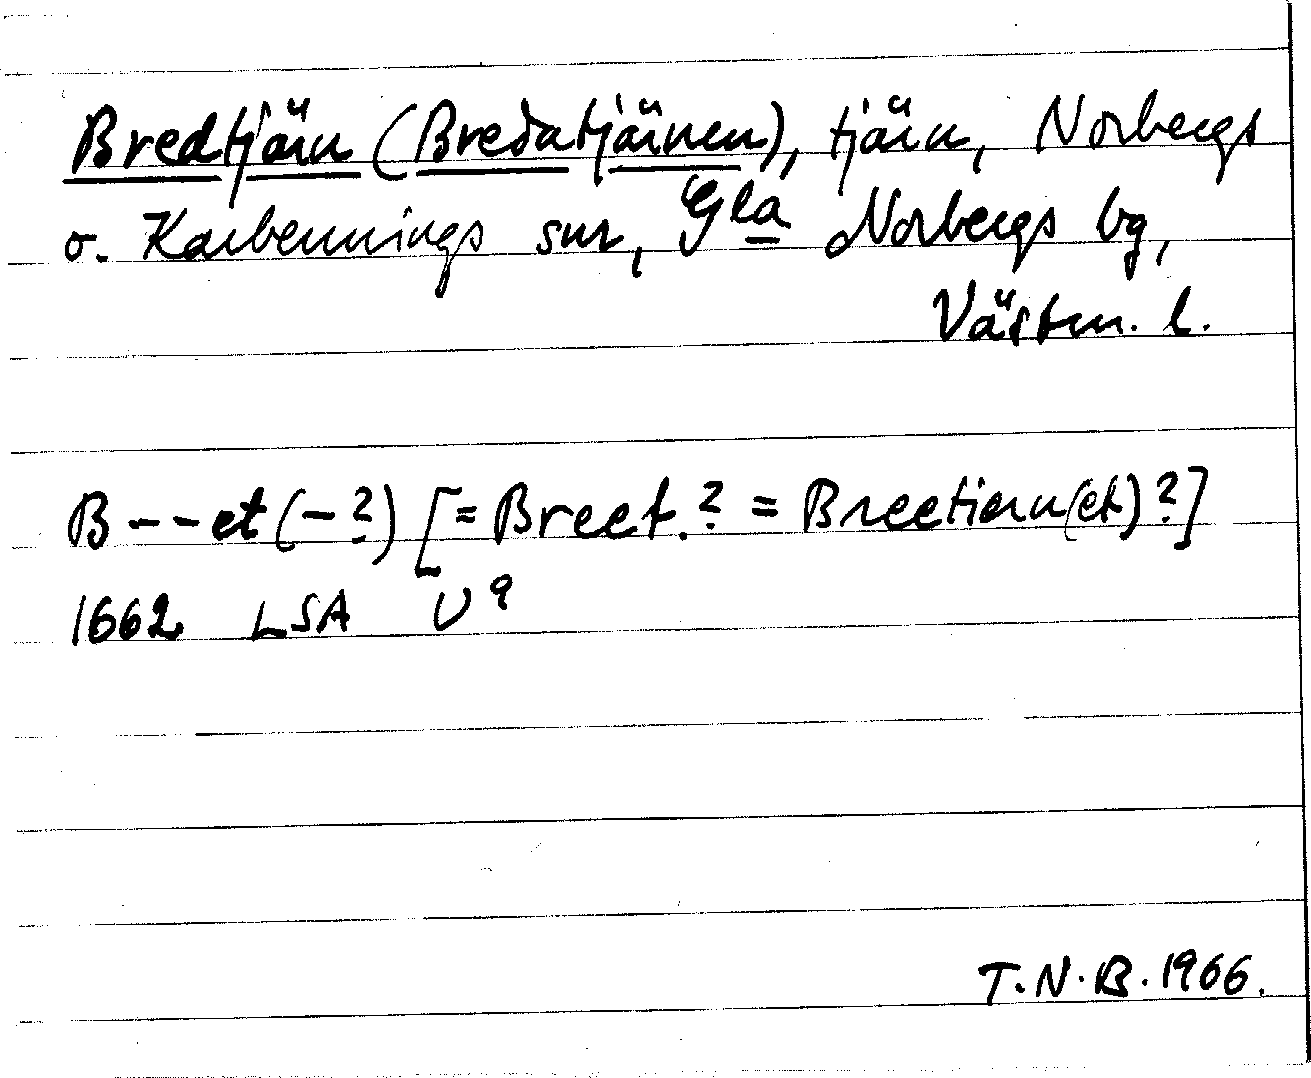 Bredtjärn (Bredatjärnen), tjärn, Norbergs
o. Karbennings snr, Gla Norbergs bg,
Västm. l.
B---et(-?) [= Breet.? = Breetiern(et)?]
1662 LSA U9
T.N.B. 1966.